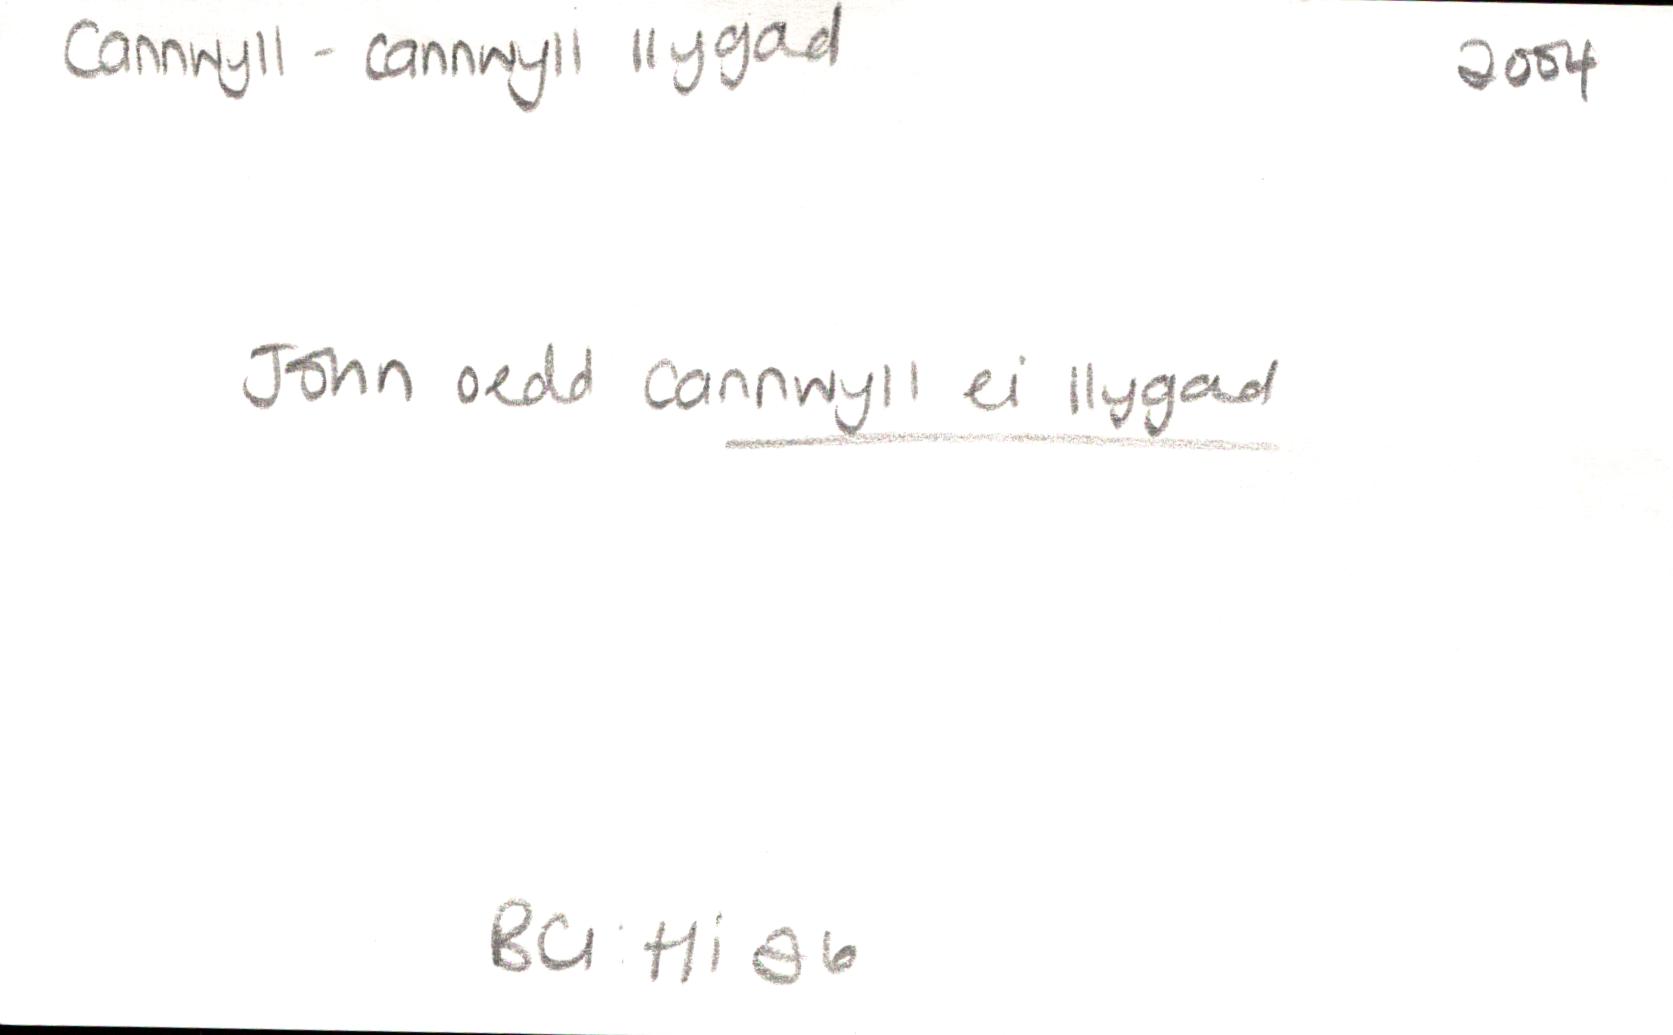 Cannwyll - cannwyll llygad 2004
John oedd cannwyll ei llygad
BCl: Hi 86